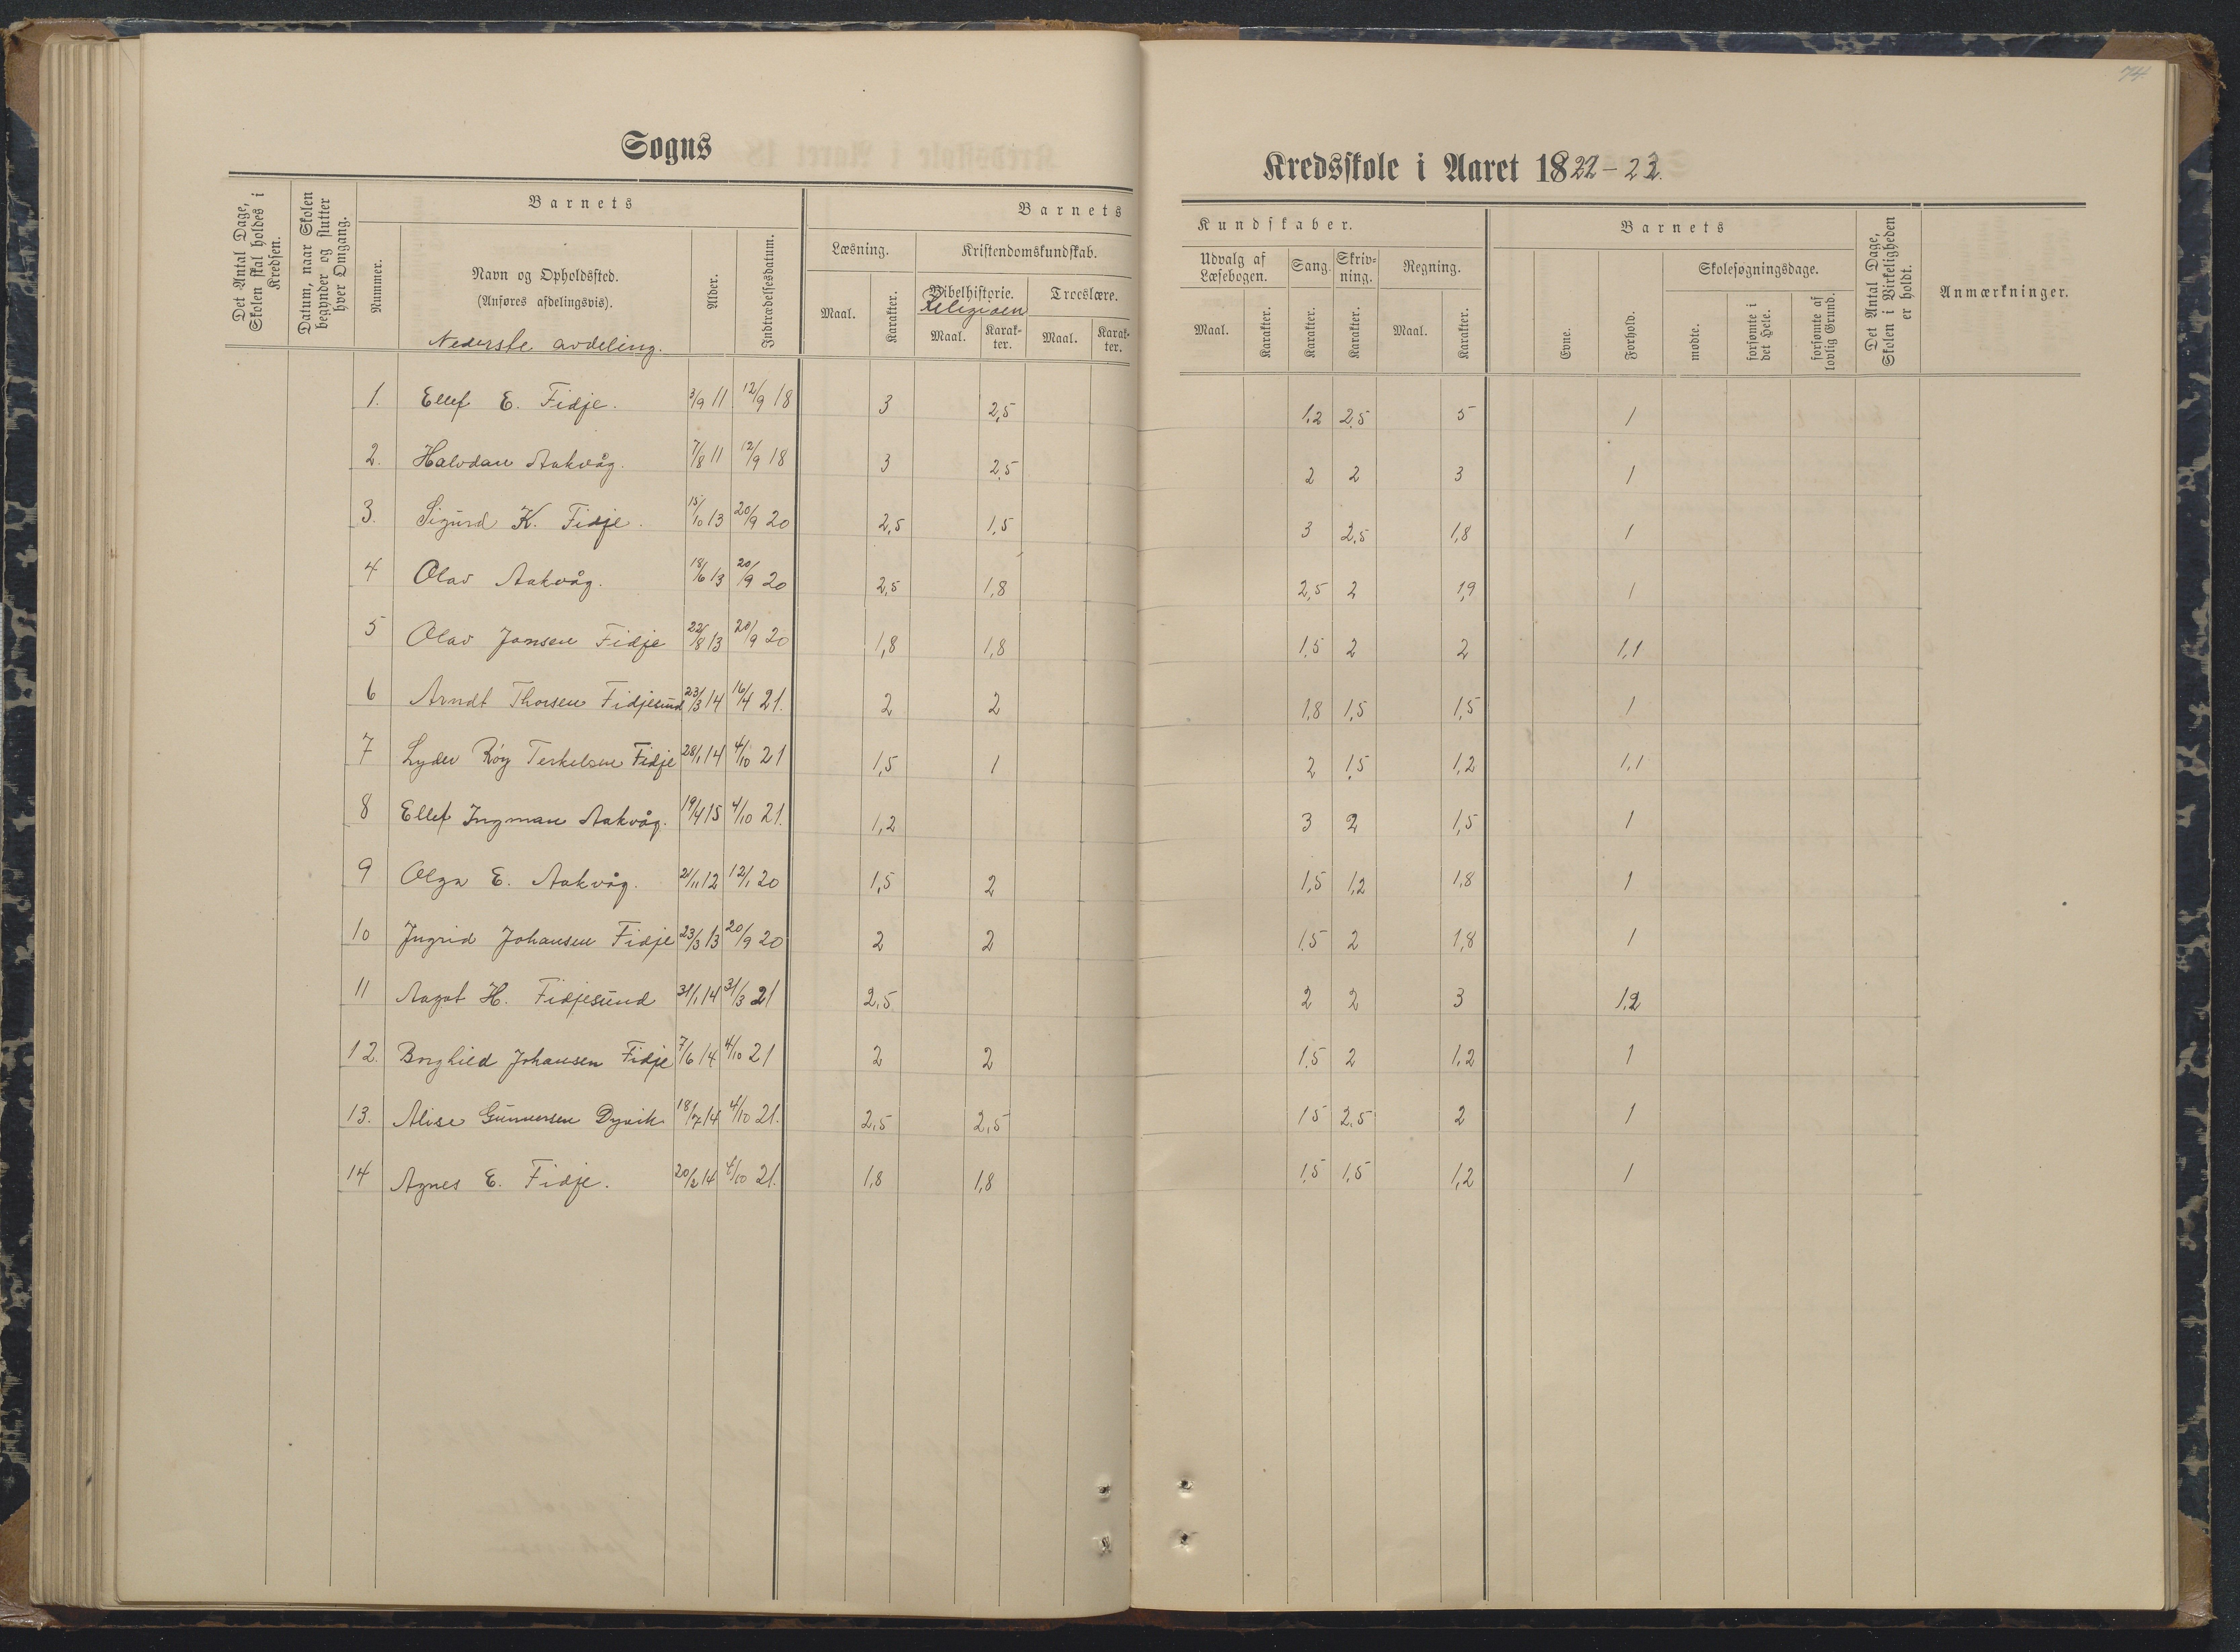 74
Sogns
Kredsskole i Aaret 1822-23.
Det Antal Dage, Skolen skal holdes i Kredsen.
Datum, naar Skolen begynder og slutter hver Omgang.
Barnets
Nummer.
Navn og Opholdssted.
(Anføres afdelingsvis).
Nederste avdeling.
Alder.
Indtrædelsesdatum.
Barnets
Læsning.
Maal.
Karakter.
Kristendomskundskab.
Bibelhistorie.
Religioen
Maal.
Karakter.
Troeslære.
Maal.
Karakter.
Kundskaber.
Udvalg af Læsebogen.
Maal.
Karakter.
Sang.
Karakter.
Skrivning.
Karakter.
Regning.
Maal.
Karakter.
Barnets
Evne.
Forhold.
Skolesøgningsdage.
mødte.
forsømte i det Hele.
forsømte af lovlig Grund.
Det Antal Dage, Skolen i Virkeligheden er holdt.
Anmærkninger.
1. Ellef E. Fidje. 3/9 11 12/9 18 3 2,5 1,2 2,5 5 1
2. Halvdan Aakvåg. 7/8 11 12/9 18 3 2,5 2 2 3 1
3. Sigurd K. Fidje. 15/10 13 20/9 20 2,5 1,5 3 2,5 1,8 1
4 Olav Aakvåg. 18/6 13 20/9 20 2,5 1,8 2,5 2 1,9 1
5 Olav Jansen Fidje 22/8 13 20/9 20 1,8 1,8 1,5 2 2 1,1
6 Arndt Thorsen Fidjesund 23/3 14 16/4 21. 2 2 1,8 1,5 1,5 1
7 Lyder Roy Terkelsen Fidje 28/1 14 4/10 21 1,5 1 2 1,5 1,2 1,1
8 Ellef Ingman Aakvåg. 19/4 15 4/10 21. 1,2 3 2 1,5 1
9 Olga E. Aakvåg. 21/11 12 12/1 20 1,5 2 1,5 1,2 1,8 1
10 Ingrid Johansen Fidje 23/3 13 20/9 20 2 2 1,5 2 1,8 1
11 Aagot H. Fidjesund 31/1 14 31/3 21 2,5 2 2 3 1,2
12. Borghild Johansen Fidje 7/6 14 4/10 21 2 2 1,5 2 1,2 1
13. Alise Gunnersen Dyvik 18/7 14 4/10 21. 2,5 2,5 15 2,5 2 1
14 Agnes E. Fidje. 20/2 14 4/10 21. 1,8 1,8 1,5 1,5 1,2 1